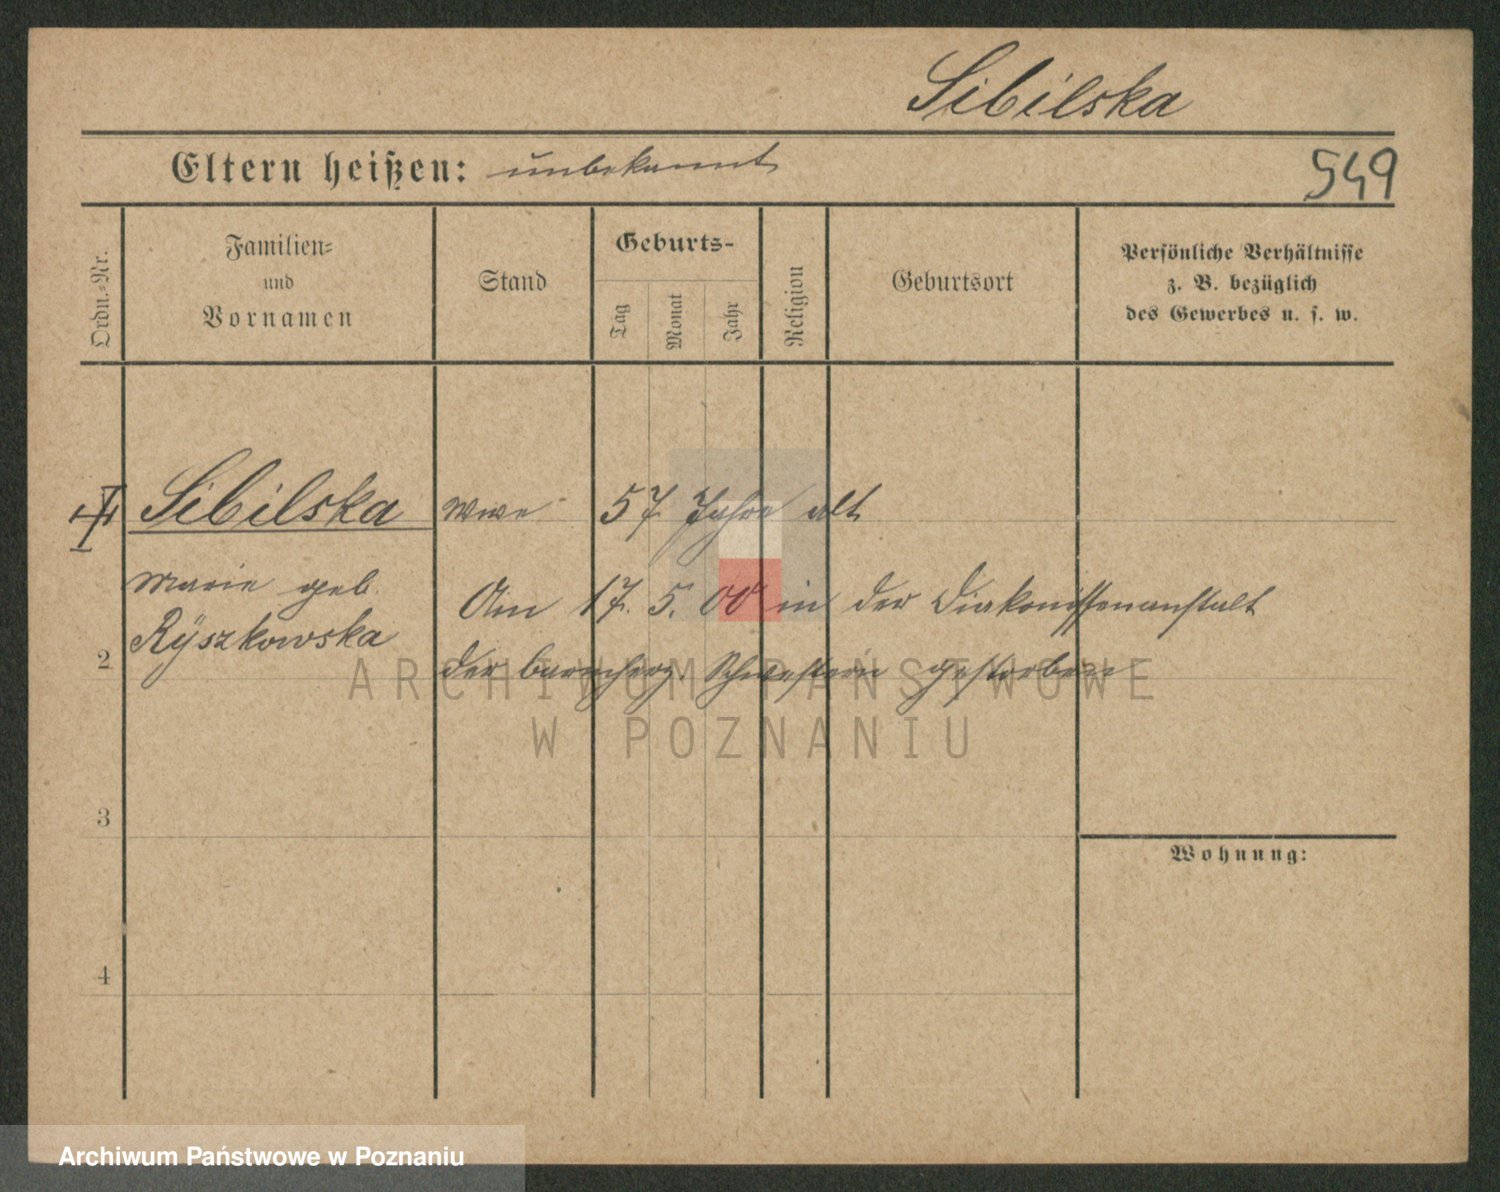 Sibilska
Eltern heißen: unbekannt
549
Ordn.-Nr.
Familien-
und
Vornamen
Stand
Geburts-
Tag
Monat
Jahr
Religion
Geburtsort
Persönliche Verhältnisse
z. B. bezüglich
des Gewerbes u. s. w.
Sibilska Wwe 57 Jahre alt
Marie geb.
Ryszkowska
Am 17. 5. 00 in der Diakonissenanstalt
2
der barmherz. Schwestern gestorben
ARCHIWUM PAŃSTWOWE
W POZNANIU
3
Wohnung:
4
Archiwum Państwowe w Poznaniu